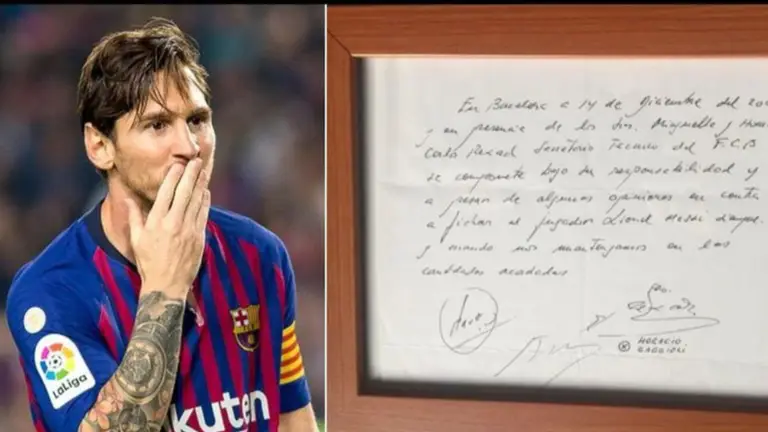 LaLiga
kuten
En Barcelona a 14 de diciembre del 20
y en presencia de los Srs. Minguella y Hora
Carlos Rexach Secretario Tecnico del F.C.B
se compromete bajo su responsabilidad y
a pesar de algunas opiniones en contra
a fichar al jugador Lionel Messi siempre
y cuando nos mantengamos en las
cantidades acordadas
HORACIO
GAGGIOLI